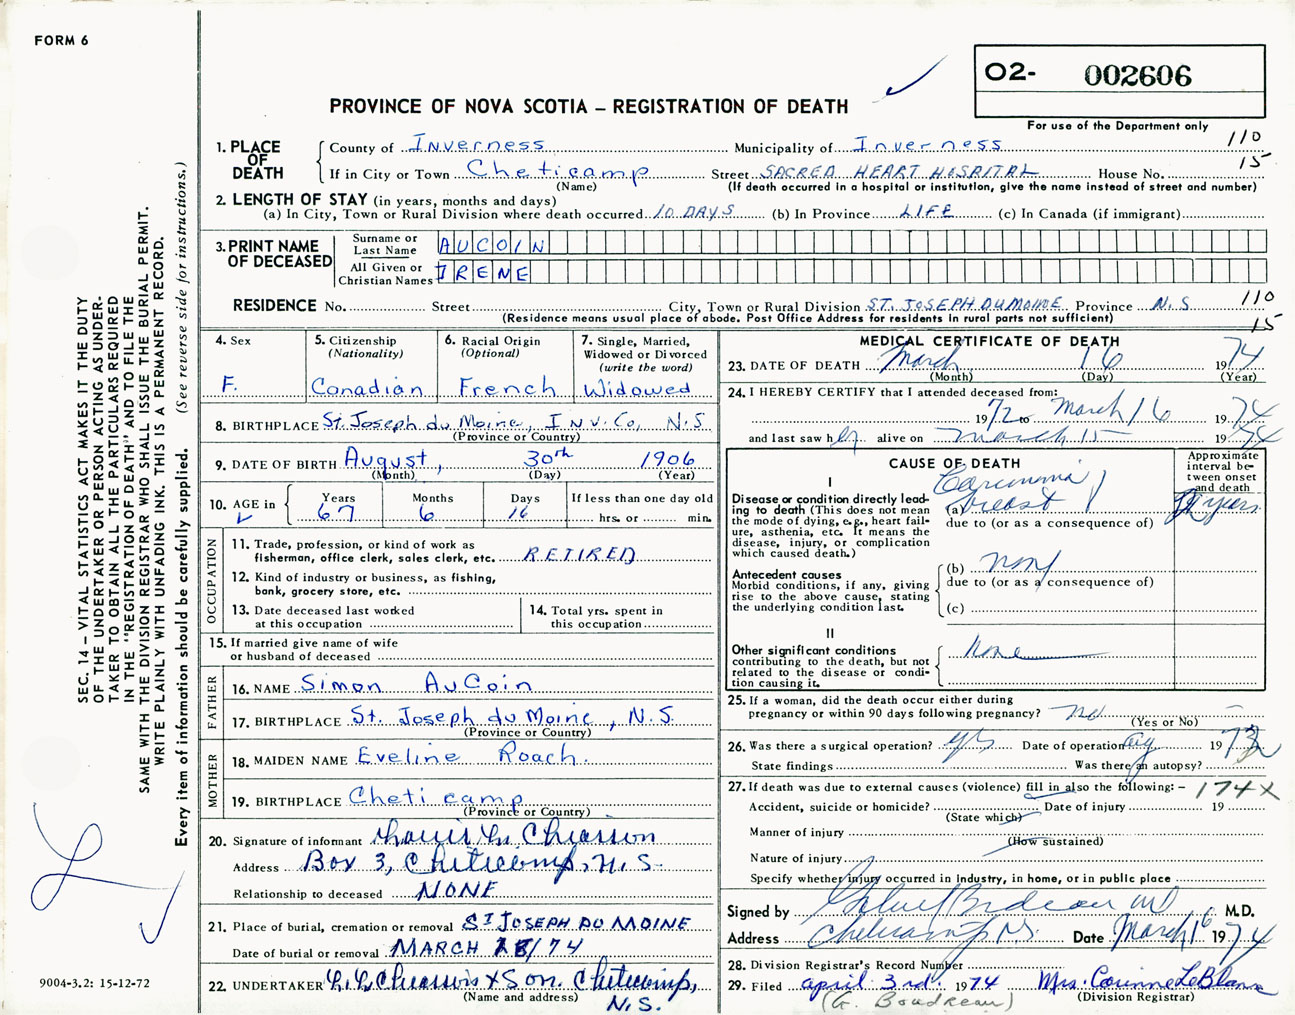 FORM 6
O2- 002606
PROVINCE OF NOVA SCOTIA — REGISTRATION OF DEATH
For use of the Department only
110
15
1. PLACE OF DEATH
County of Inverness Municipality of Inverness
If in City or Town Cheticamp Street SACRED HEART HOSPITAL House No.
(Name) (If death occurred in a hospital or institution, give the name instead of street and number)
2. LENGTH OF STAY (in years, months and days)
(a) In City, Town or Rural Division where death occurred 10 DAYS (b) In Province LIFE (c) In Canada (if immigrant)
3. PRINT NAME OF DECEASED
Surname or Last Name AUCOIN
All Given or Christian Names IRENE
RESIDENCE No. Street City, Town or Rural Division ST. JOSEPH DUMOINE Province N.S 110
(Residence means usual place of abode. Post Office Address for residents in rural parts not sufficient) 15
4. Sex
F.
5. Citizenship
(Nationality)
Canadian
6. Racial Origin
(Optional)
French
7. Single, Married,
Widowed or Divorced
(write the word)
Widowed
8. BIRTHPLACE St. Joseph du Moine, Inv. Co, N.S
(Province or Country)
9. DATE OF BIRTH August, 30th 1906
(Month) (Day) (Year)
10. AGE in
Years Months Days If less than one day old
67 6 16 hrs. or min.
OCCUPATION
11. Trade, profession, or kind of work as
fisherman, office clerk, sales clerk, etc. RETIRED
12. Kind of industry or business, as fishing,
bank, grocery store, etc.
13. Date deceased last worked
at this occupation
14. Total yrs. spent in
this occupation
15. If married give name of wife
or husband of deceased
FATHER
16. NAME Simon AuCoin
17. BIRTHPLACE St. Joseph du Moine, N.S.
(Province or Country)
MOTHER
18. MAIDEN NAME Eveline Roach.
19. BIRTHPLACE Cheticamp
(Province or Country)
20. Signature of informant Chiasson
Address Box 3, Cheticamp, N.S.
Relationship to deceased NONE
21. Place of burial, cremation or removal ST JOSEPH DU MOINE
Date of burial or removal MARCH /74
22. UNDERTAKER Chiasson & Son. Cheticamp,
(Name and address) N.S.
MEDICAL CERTIFICATE OF DEATH
23. DATE OF DEATH March 16 1974
(Month) (Day) (Year)
24. I HEREBY CERTIFY that I attended deceased from:
1972 to March 16 1974
and last saw her alive on March 15 1974
CAUSE OF DEATH
Approximate
interval be-
tween onset
and death
I
Disease or condition directly lead-
ing to death (This does not mean
the mode of dying, e.g., heart fail-
ure, asthenia, etc. It means the
disease, injury, or complication
which caused death.)
Carcinoma
(a) breast years
due to (or as a consequence of)
Antecedent causes
Morbid conditions, if any, giving
rise to the above cause, stating
the underlying condition last.
(b) none
due to (or as a consequence of)
(c)
II
Other significant conditions
contributing to the death, but not
related to the disease or condi-
tion causing it.
none
25. If a woman, did the death occur either during
pregnancy or within 90 days following pregnancy? no
(Yes or No)
26. Was there a surgical operation? yes Date of operation Aug 1973
State findings Was there an autopsy?
27. If death was due to external causes (violence) fill in also the following: — 174X
Accident, suicide or homicide? Date of injury 19
(State which)
Manner of injury
(How sustained)
Nature of injury
Specify whether injury occurred in industry, in home, or in public place
Signed by M.D.
Address Cheticamp N.S. Date March 16 1974
28. Division Registrar's Record Number
29. Filed April 3rd. 1974 Mrs. Corinne LeBlanc
(G. Boudreau) (Division Registrar)
SEC. 14 — VITAL STATISTICS ACT MAKES IT THE DUTY
OF THE UNDERTAKER OR PERSON ACTING AS UNDER-
TAKER TO OBTAIN ALL THE PARTICULARS REQUIRED
IN THE "REGISTRATION OF DEATH" AND TO FILE THE
SAME WITH THE DIVISION REGISTRAR WHO SHALL ISSUE THE BURIAL PERMIT.
WRITE PLAINLY WITH UNFADING INK. THIS IS A PERMANENT RECORD.
Every item of information should be carefully supplied. (See reverse side for instructions.)
9004-3.2: 15-12-72